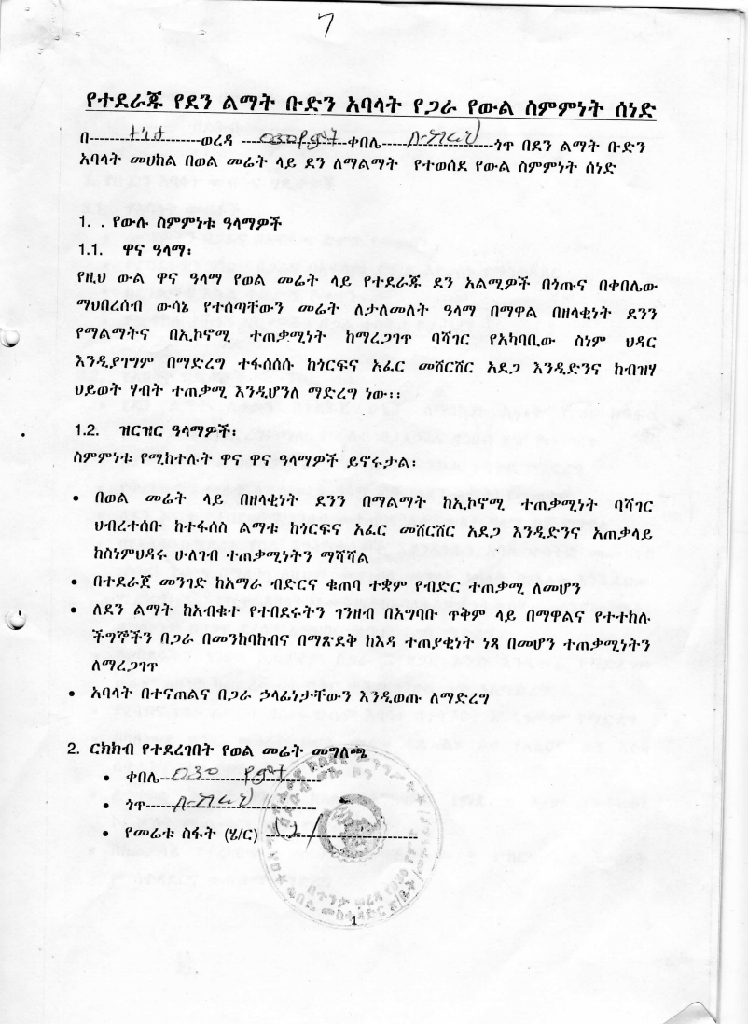 7
የተደራጁ የደን ልማት ቡድን አባላት የጋራ የውል ስምምነት ሰነድ
በ---------ወረዳ ---------ቀበሌ---------ጎጥ በደን ልማት ቡድን
አባላት መሀከል በወል መሬት ላይ ደን ለማልማት የተወሰደ የውል ስምምነት ሰነድ
1. . የውሉ ስምምነቱ ዓላማዎች
1.1. ዋና ዓላማ፡
የዚህ ውል ዋና ዓላማ የወል መሬት ላይ የተደራጁ ደን አልሚዎች በጎጡና በቀበሌው
ማህበረሰብ ውሳኔ የተሰጣቸውን መሬት ለታለመለት ዓላማ በማዋል በዘላቂነት ደንን
የማልማትና በኢኮኖሚ ተጠቃሚነት ከማረጋገጥ ባሻገር የአካባቢው ስነም ህዳር
እንዲያገግም በማድረግ ተፋሰሰሱ ከጎርፍና አፈር መሸርሸር አደጋ እንዲድንና ከብዝሃ
ህይወት ሃብት ተጠቃሚ እንዲሆንለ ማድረግ ነው፡፡
1.2. ዝርዝር ዓላማዎች፡
ስምምነቱ የሚከተሉት ዋና ዋና ዓላማዎች ይኖሩታል፡
• በወል መሬት ላይ በዘላቂነት ደንን በማልማት ከኢኮኖሚ ተጠቃሚነት ባሻገር
ህብረተሰቡ ከተፋሰስ ልማቱ ከጎርፍና አፈር መሸርሸር አደጋ እንዲድንና አጠቃላይ
ከስነምህዳሩ ሁለገብ ተጠቃሚነትን ማሻሻል
• በተደራጀ መንገድ ከአማራ ብድርና ቁጠባ ተቋም የብድር ተጠቃሚ ለመሆን
• ለደን ልማት ከአብቁተ የተበደሩትን ገንዘብ በአግባቡ ጥቅም ላይ በማዋልና የተተከሉ
ችግኞችን በጋራ በመንከባከብና በማጽደቅ ከእዳ ተጠያቂነት ነጻ በመሆን ተጠቃሚነትን
ለማረጋገጥ
• አባላት በተናጠልና በጋራ ኃላፊነታቸውን እንዲወጡ ለማድረግ
2. ርክክብ የተደረገበት የወል መሬት መግለጫ
• ቀበሌ
• ጎጥ
• የመሬቱ ስፋት (ሄ/ር)
1